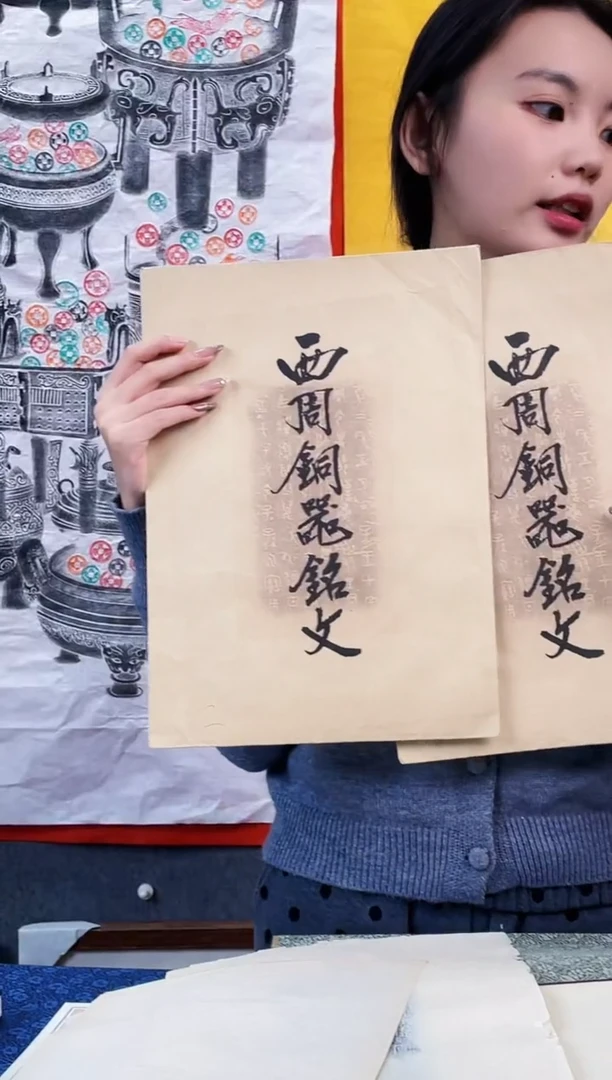 西周銅器銘文
西周銅器銘文